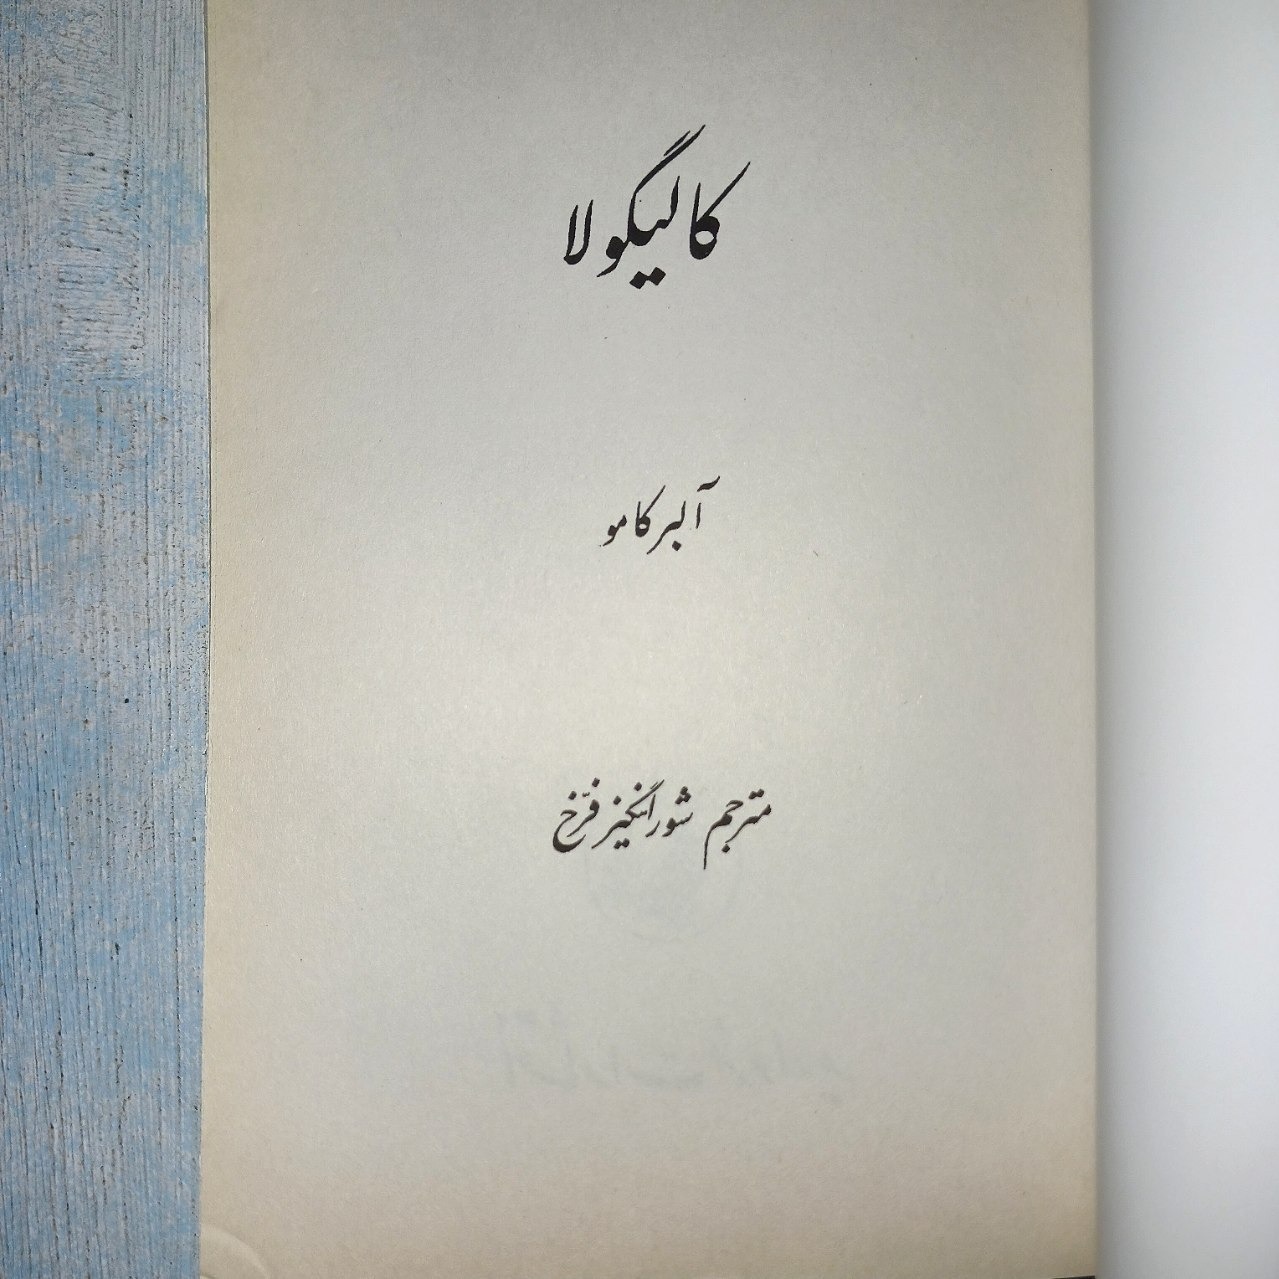 کالیگولا
آلبر کامو
مترجم شورانگیز فرّخ